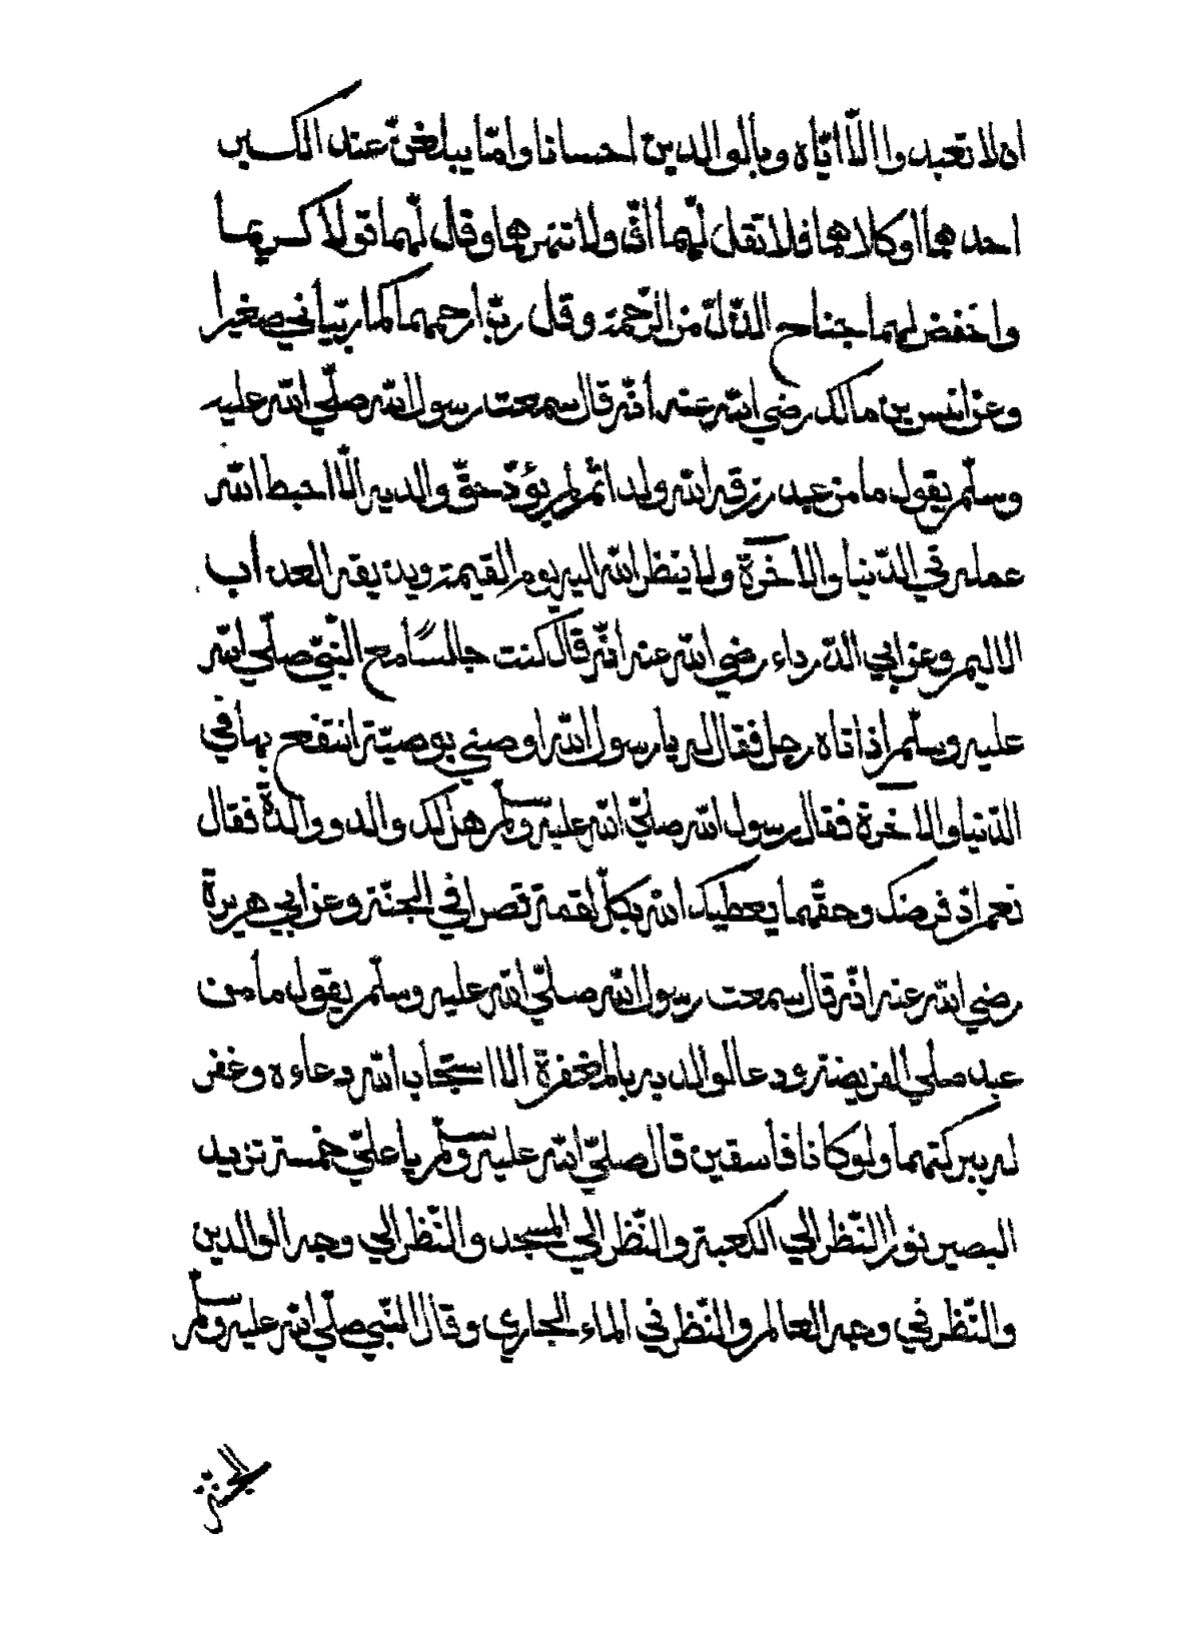 ان لا تعبدوا الّا ايّاه وبالوالدين احسانا وامّا يبلغنّ عند الكبر
احدهما او كلاهما فلا تقل لّهما افّ ولا تنهرهما وقل لّهما قولا كريما
واخفض لهما جناح الذّلّ من الرّحمة وقل ربّ ارحمهما كما ربّياني صغيرا
وعن انس بن مالك رضي اللّه عنه انّه قال سمعت رسول اللّه صلّي اللّه عليه
وسلّم يقول ما من عبد رزقه اللّه ولدا ثم لم يؤدّ حقّ والديه الّا احبط اللّه
عمله في الدّنيا والاخرة ولا ينظر اللّه اليه يوم القيمة ويذيقه العذاب
الاليم وعن ابي الدّرداء رضي اللّه عنه انّه قال كنت جالسًا مع النّبيّ صلّي اللّه
عليه وسلّم اذا تاه رجل فقال له يا رسول اللّه اوصني بوصيّة انتفع بها في
الدّنيا والاخرة فقال رسول اللّه صلّي اللّه عليه وسلّم هل لك والد ووالدة فقال
نعم اذ فرضك وحقّهما يعطيك اللّه بكلّ لقمة قصرا في الجنّة وعن ابي هريرة
رضي اللّه عنه انّه قال سمعت رسول اللّه صلّي اللّه عليه وسلّم يقول ما من
عبد صلي الفريضة ودعا لوالديه بالمغفرة الا استجاب اللّه دعاءه وغفر
له ببركتهما ولو كانا فاسقين قال صلّي اللّه عليه وسلّم يا عليّ خمسة تزيد
البصير نورا النّظر الي الكعبة والنّظر الي المسجد والنّظر الي وجه الوالدين
والنّظر في وجه العالم والنّظر في الماء الجاري وقال النّبي صلّي اللّه عليه وسلّم
الجنّة